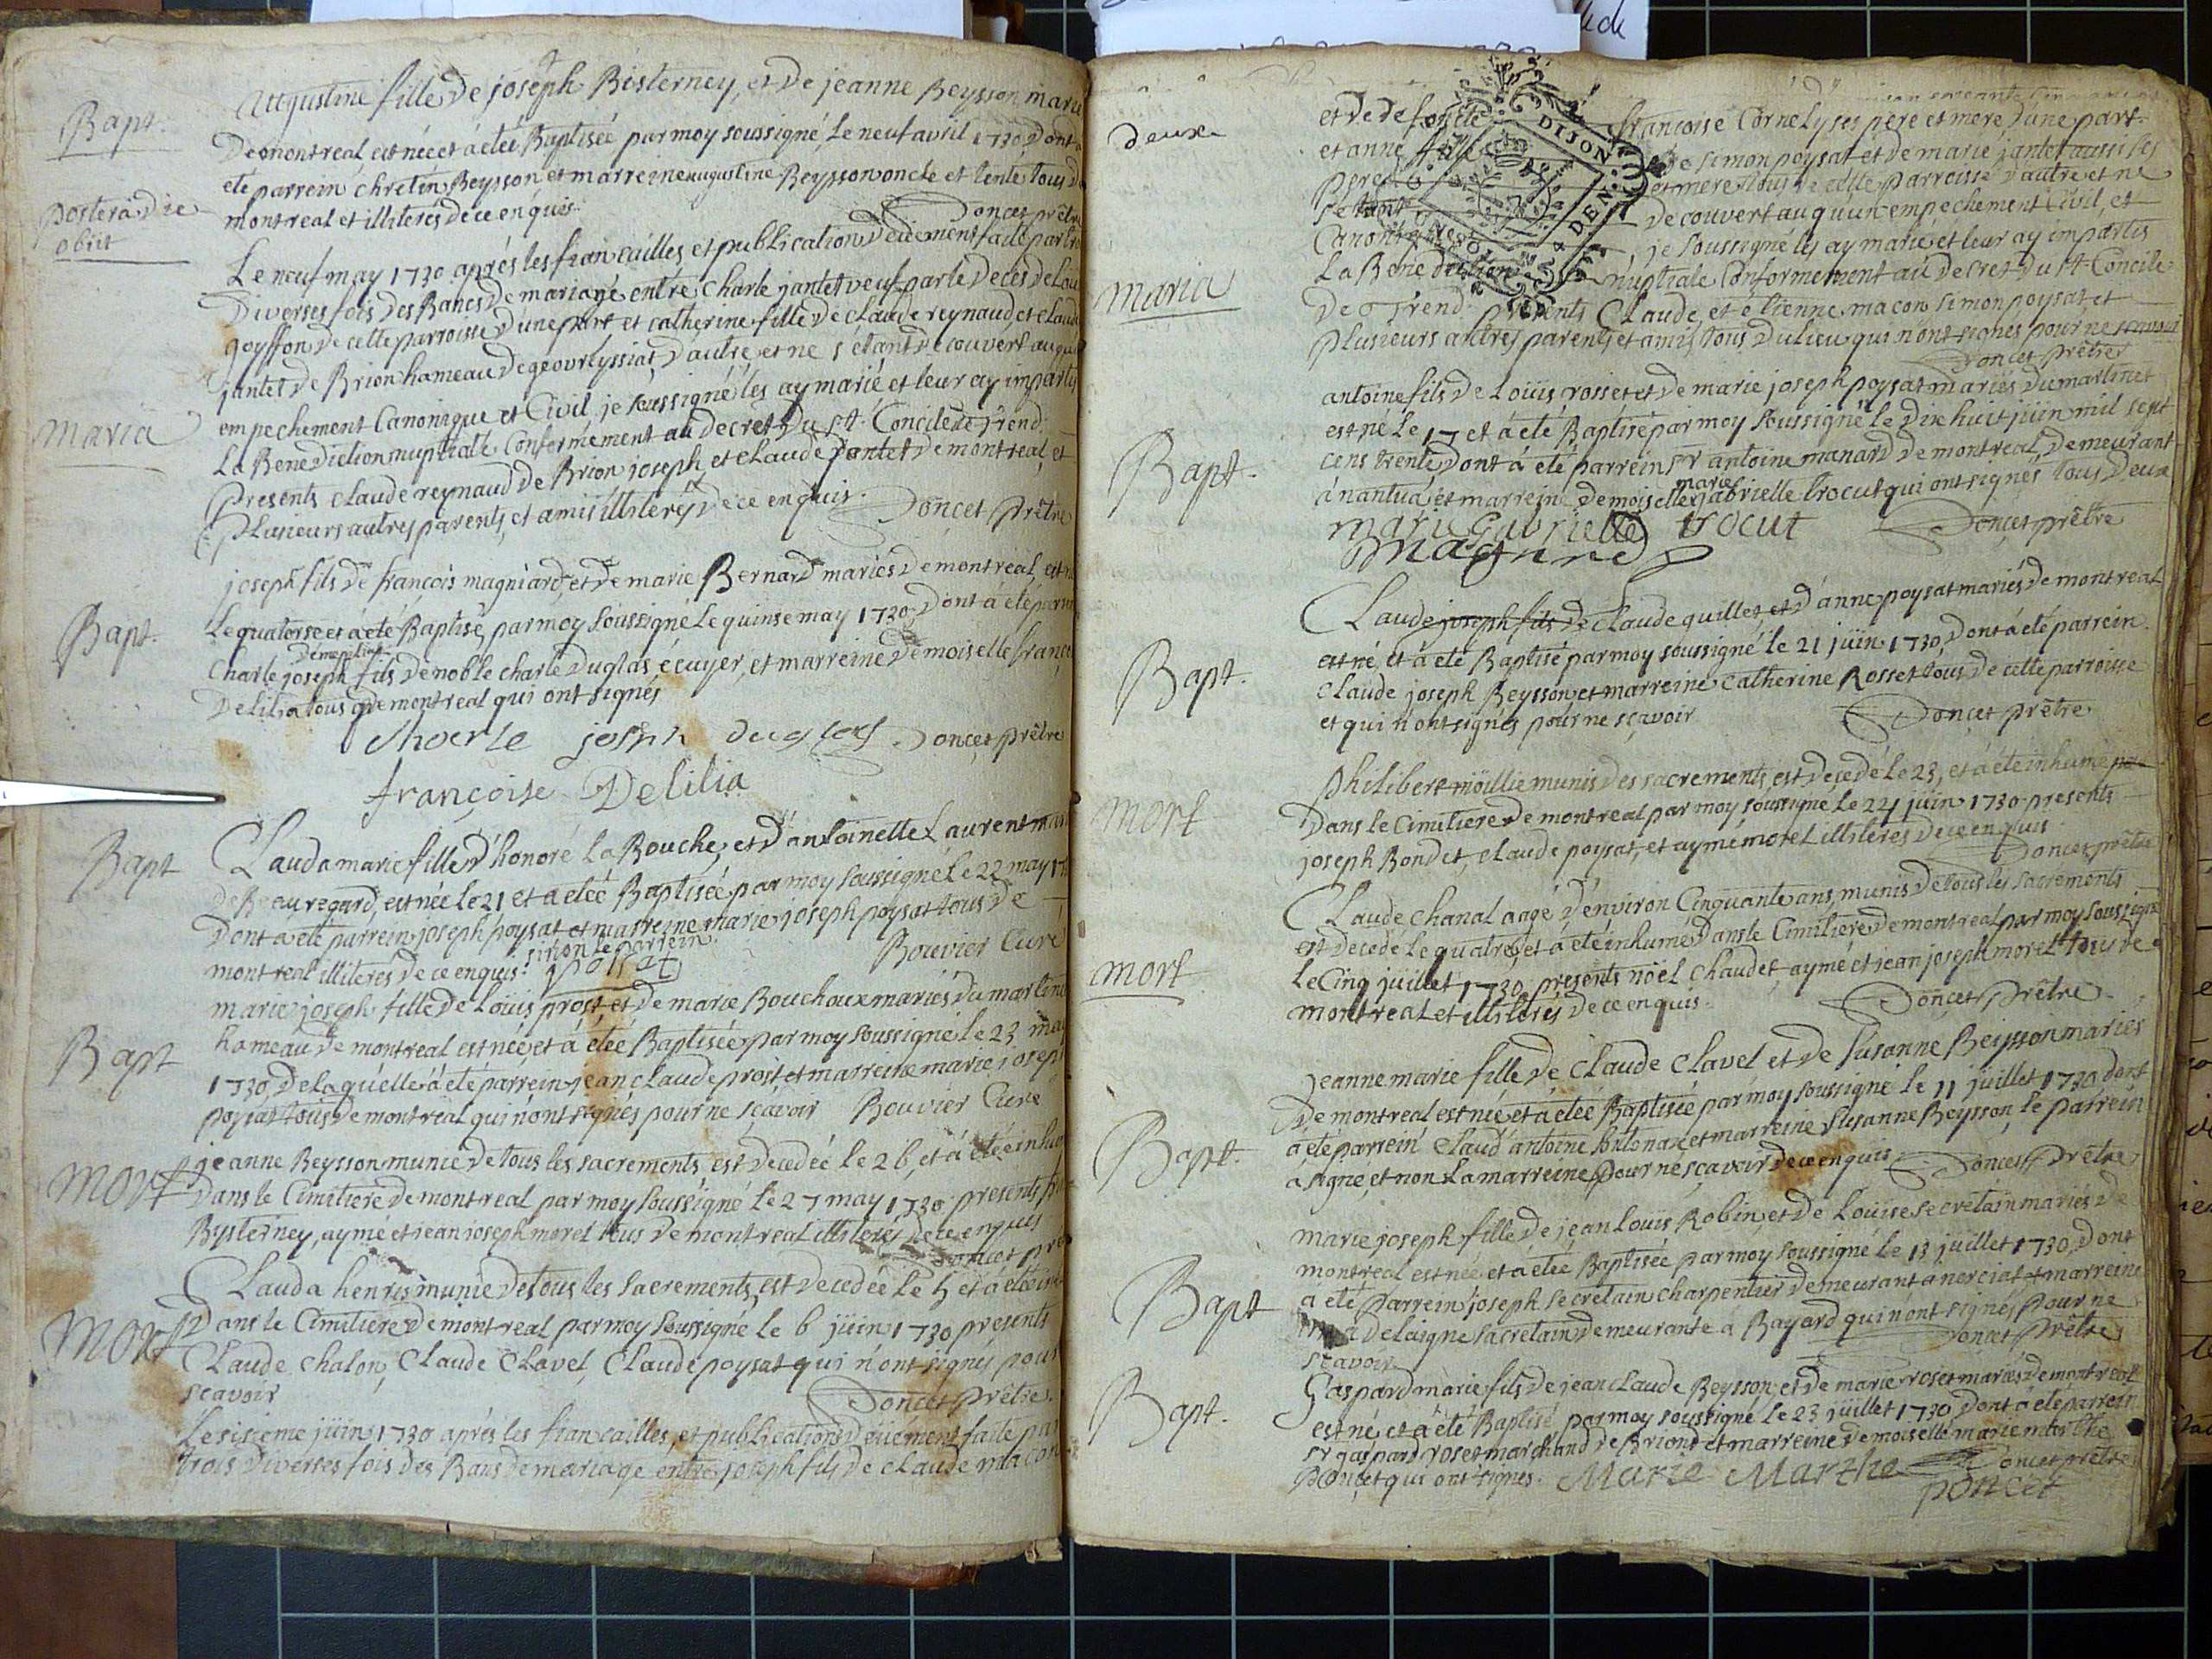 Bapt.
Augustine fille de joseph Bisterney, et de jeanne Beysson marié
de montreal est née et a étée Baptisée par moy soussigné, le neuf avril 1730, Dont a
été parrein chretin Beysson et marreine augustine Beysson oncle et tente tous de
montreal et illiterés de ce enquis. Doncet prêtre
postera die
obiit
Le neuf may 1730 aprés les fiancailles et publication deüement faite par trois
Diverses fois des Bancs de mariage entre charle jantet veuf par le deces de
goyffon de cette parroisse d'une part et catherine fille de claude reynaud et claud
jantet de Brion hameau de geovreyssiat d'autre, et ne s'étant decouvert auqun
maria
empechement Canonique et Civil, je soussigné les ay marié et leur ay impartis
La Benediction nuptiale Conformement au decret du st. Concile de trend.
presents claude reynaud de Brion joseph et claude jantet de montreal, et
plusieurs autres parents et amis illiterés de ce enquis. Doncet prêtre
Bapt.
joseph fils de francois magniard, et de marie Bernard mariés de montreal, est né
Le quatorse et a été Baptisé par moy soussigné Le quinse may 1730, Dont a été parrein
demeptieu
charle joseph fils de noble charle Duglas écuyer, et marreine Demoiselle francoise
Delilia tous de montreal qui ont signés
Charle joseph duglas Doncet prêtre
françoise Delilia
Bapt
Clauda marie fille d'honoré la Bouche, et d'antoinette Laurent mariés
de Beauregard, est née le 21 et a étée Baptisée par moy soussigné Le 22 may 17
Dont a été parrein joseph poysat et marreine marie joseph poysat tous de
sinon le parrein.
montreal illiterés de ce enquis. poisat Bouvier Curé
Bapt
marie joseph fille de Loüis prost, et de marie Bouchoux mariés du martinet
hameau de montreal est née et a étée Baptisée par moy soussigné le 23 may
1730, de laquelle a été parrein jean claude prost, et marreine marie joseph
poysat tous de montreal qui n'ont signés pour ne sçavoir Bouvier Curé
mort
jeanne Beysson munie de tous les sacrements, est decedée le 26, et a étée inhumée
Dans le Cimitiere de montreal par moy soussigné le 27 may 1730 presents
Bysterney, aymé et jean joseph morel tous de montreal illiterés de ce enquis
Doncet prêtre
mort
Clauda henris munie de tous les sacrements, est decedée le 5 et a étée in
Dans le Cimitiere de montreal par moy soussigné le 6 juin 1730 presents
Claude chalon, Claude Clavel, Claude poysat qui n'ont signés pour
scavoir Doncet prêtre.
Le sisieme juin 1730 aprés les fiancailles, et publication deüement faite par
trois diverses fois des Bans de mariage entre joseph fils de claude macon
deuxe
et de defuncte francoise Cornely ses pere et mere d'une part
et anne fille de simon poysat et de marie jantet aussi ses
pere et mere tous de cette parroisse d'autre et ne
s'etant decouvert auqu'un empechement Civil, et
Canonique je soussigné les ay marié et leur ay impartis
DIJON
DEN
maria
La Benediction nuptiale Conformement au decret du st. Concile
De Trend. presents Claude, et étienne macon simon poysat et
plusieurs autres parents et amis tous du lieu qui n'ont signés pour ne scavoir
Doncet prêtre
Bapt.
antoine fils de Loüis rosset et de marie joseph poysat mariés du martinet
est né le 17 et a été Baptisé par moy soussigné le dix huit juin mil sept
cens trente, Dont a été parrein sr antoine manard de montreal, demeurant
marie
a nantua, et marreine demoiselle gabrielle trocut qui ont signés tous deux
marie Gavrielle trocut Doncet prêtre
Magnard
Bapt.
Claude joseph fils de Claude quillet, et d'anne poysat mariés de montreal
est né, et a été Baptisé par moy soussigné le 21 juin 1730, Dont a été parrein
claude joseph Beysson, et marreine catherine Rosset tous de cette parroisse
et qui n'ont signés pour ne sçavoir Doncet prêtre
mort
philibert moüillie munis des sacrements, est decedé le 23, et a été inhumé
Dans le Cimitiere de montreal par moy soussigné Le 24 juin 1730 presents
joseph Bondet, claude poysat, et aymé morel illiterés de ce enquis
Doncet prêtre
mort
Claude chanal aagé d'environ Cinquante ans, munis de tous les sacrements
est decedé le quatre, et a été inhumé Dans le Cimitiere de montreal par moy soussigné
le Cinq juillet 1730 presents noël chaudet, aymé et jean joseph morel tous de
montreal et illiterés de ce enquis. Doncet prêtre
Bapt.
jeanne marie fille de Claude Clavel et de susanne Beysson mariés
De montreal est née et a étée Baptisée par moy soussigné le 11 juillet 1730 dont
a été parrein Claud' antoine fontonax et marreine Susanne Beysson, le parrein
a signé, et non La marreine pour ne sçavoir de ce enquis Doncet prêtre
Bapt
marie joseph fille de jean loüis Robin, et de Loüise secretain mariés de
montreal est née et a étée Baptisée par moy soussigné le 13 juillet 1730, dont
a été parrein joseph secretain charpentier demeurant a nerciat et marreine
delaigne sacretain demeurante a Bayard qui n'ont signés pour ne
scavoir Doncet prêtre
Bapt.
Gaspard marie fils de jean claude Beysson, et de marie roset mariés de montreal
est né, et a été Baptisé par moy soussigné le 23 juillet 1730, dont a été parrein
sr gaspard roset marchand de Briond et marreine demoiselle marie marthe
Poncet qui ont signés. Marie Marthe Doncet prêtre
poncet